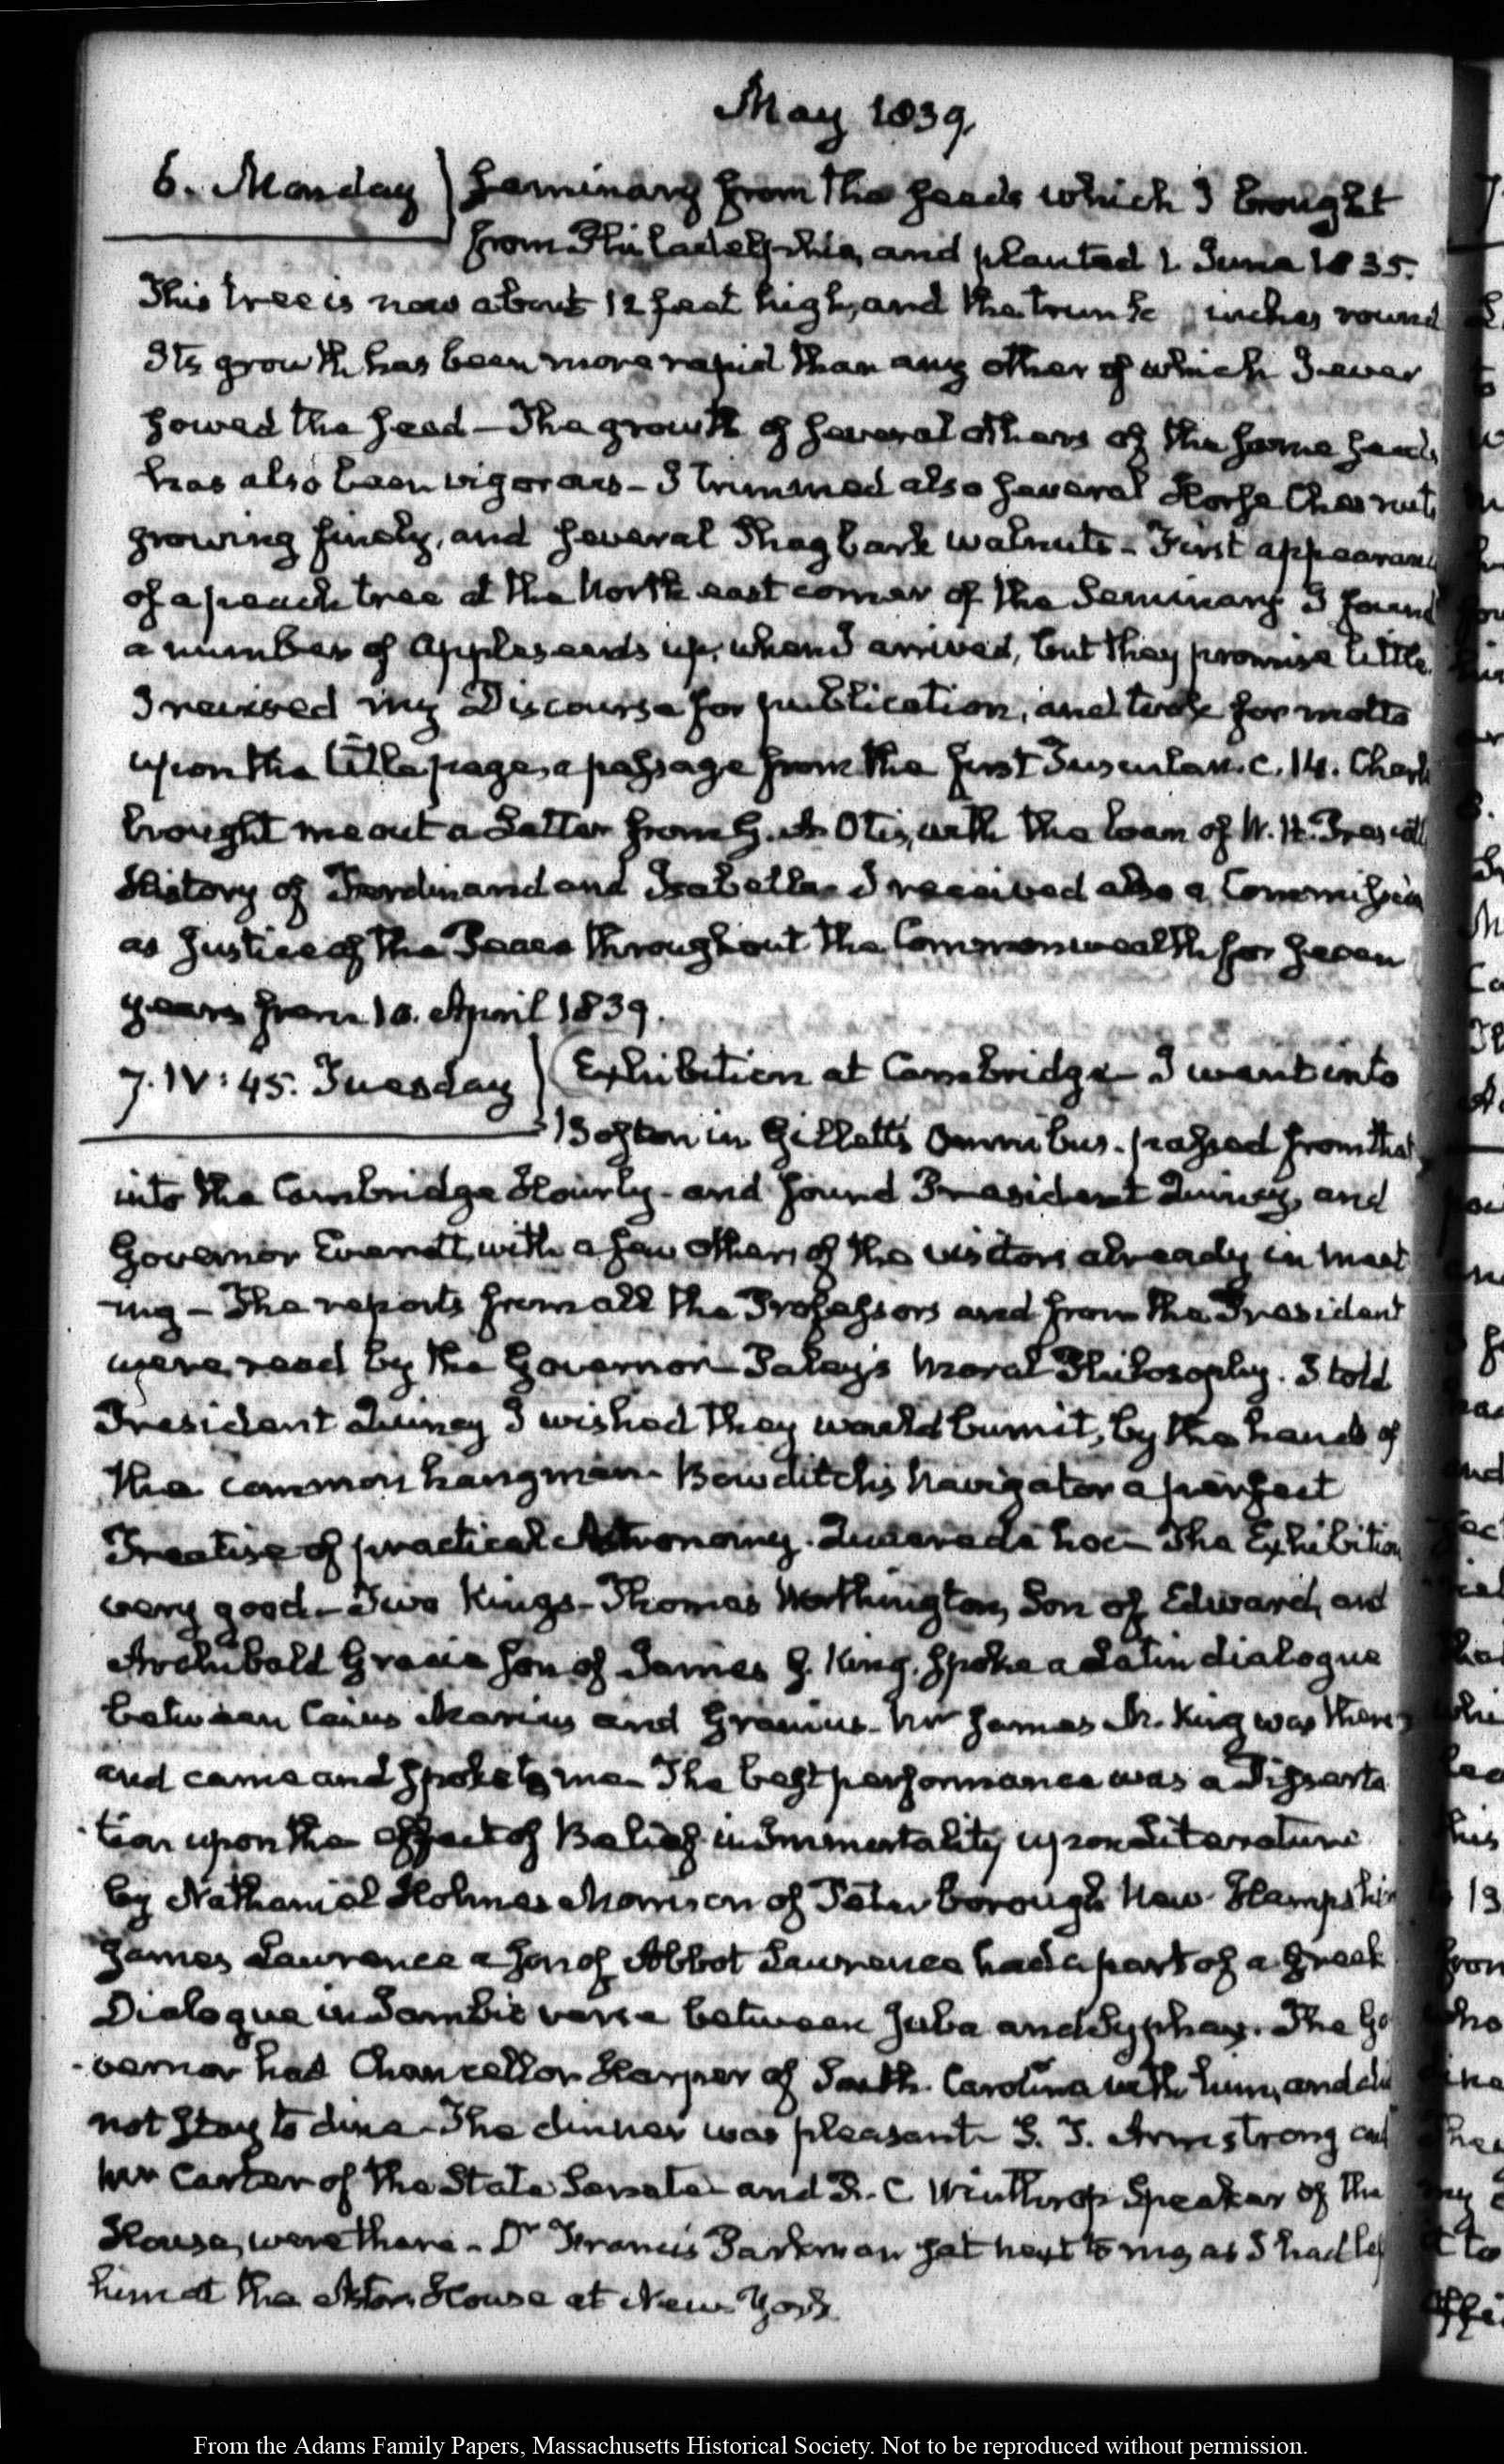 May 1839.
6. Monday Seminary from the seeds which I brought
from Philadelphia, and planted 2 June 1835.
This tree is now about 12 feet high, and the trunk inches round
Its growth has been more rapid than any other of which I ever
sowed the seed — The growth of several others of the same seeds
has also been vigorous — I trimmed also several Horse Chesnuts
growing finely, and several Shagbark walnuts — First appearance
of a peach tree at the North east corner of the Seminary I found
a number of Appleseeds up, when I arrived, but they promise little
I revised my Discourse for publication, and took for motto
upon the title page, a passage from the first Tusculan. c. 14. Charles
brought me out a Letter from G. A. Otis, with the loan of W. H. Prescott
History of Ferdinand and Isabella — I received also a Commission
as Justice of the Peace throughout the Commonwealth for seven
years from 10. April 1839.
7. IV: 45. Tuesday Exhibition at Cambridge — I went into
Boston in Gillett's Omnibus — passed from that
into the Cambridge Hourly — and found President Quincy, and
Governor Everett, with a few others of the visitors already in meet
ing — The reports from all the Professors and from the President
were read by the Governor — Paley's Moral Philosophy. I told
President Quincy I wished they would burn it, by the hands of
the common hangman — Bowditch's Navigator a perfect
Treatise of practical Astronomy. Quaere de hoc — The Exhibition
very good — Two Kings — Thomas Worthington, Son of Edward, and
Archibald Gracie son of James G. King, spoke a Latin dialogue
between Caius Marius and Granius — Mr James G. King was there
and came and spoke to me — The best performance was a Disserta
tion upon the effect of Belief in Immortality upon Literature
by Nathaniel Holmes Morrison of Peterborough New Hampshire
James Lawrence a son of Abbot Lawrence had a part of a Greek
Dialogue in Iambic verse between Juba and Syphax. The Go
vernor had Chancellor Harper of South Carolina with him, and did
not stay to dine — The dinner was pleasant — S. T. Armstrong and
Mr Carter of the State Senate — and R. C. Winthrop Speaker of the
House, were there — Dr Francis Parkman sat next to me, as I had left
him at the Astor House at New York
From the Adams Family Papers, Massachusetts Historical Society. Not to be reproduced without permission.